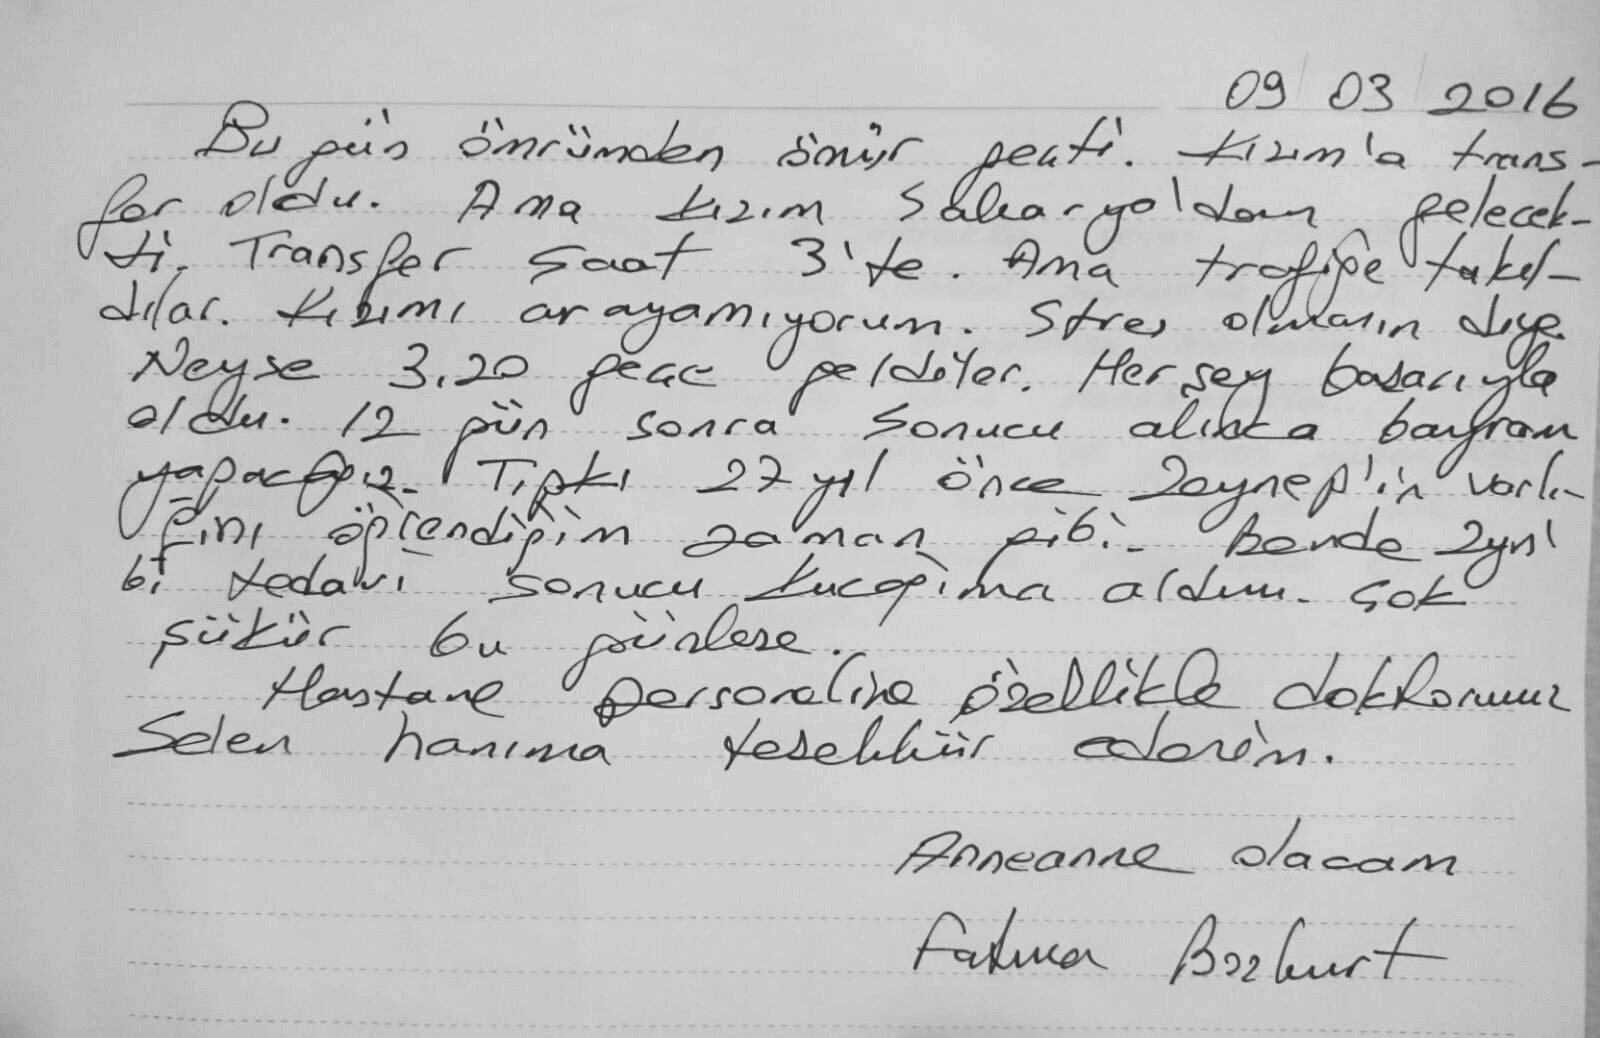 09 03 2016
Bu gün ömrümden ömür gecti. Kızım'a trans-
fer oldu. Ama kızım Sakarya'dan gelecek-
ti. Transfer saat 3'te. Ama trafiğe takıl-
dılar. Kızımı arayamıyorum. Stres olmasın diye.
Neyse 3.20 gece geldiler. Herşey basarıyla
oldu. 12 gün sonra sonucu alınca bayram
yapacağız. Tıpkı 27 yıl önce Zeynep'in varlı-
ğını öğrendiğim zaman gibi. Bende Zeyn'i
bi tedavi sonucu kucağıma aldım. çok
şükür bu günlere.
Hastane personeline özellikle doktorumuz
Selen hanıma tesekkür ederim.
Anneanne olacam
Fatma Bozkurt